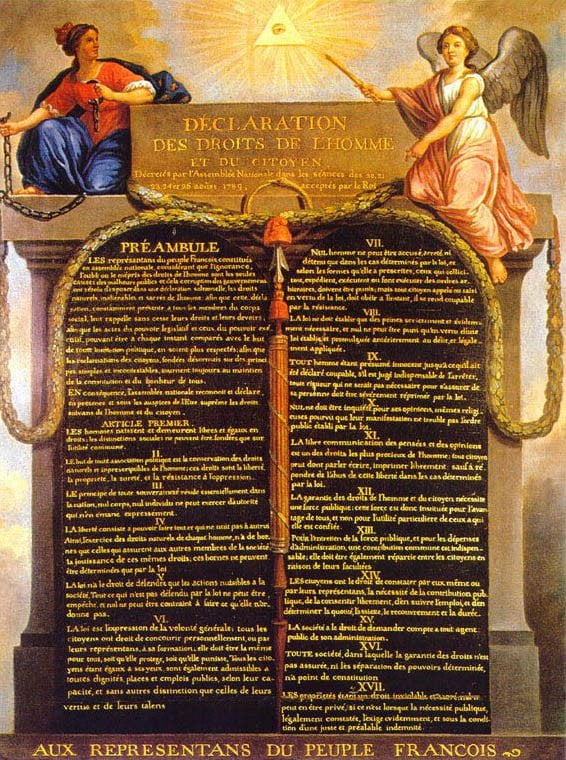 DÉCLARATION
DES DROITS DE L'HOMME
ET DU CITOYEN,
Décretés par l'Assemblée Nationale dans les séances des 20, 21
23, 24 et 26 août 1789, acceptés par le Roi
PRÉAMBULE
LES représentans du peuple François constitués
en assemblée nationale, considérant que l'ignorance,
l'oubli ou le mépris des droits de l'homme sont les seules
causes des malheurs publics et de la corruption des gouvernemens
ont résolu d'exposer dans une déclaration solemnelle, les droits
naturels, inaliénables et sacrés de l'homme; afin que cette décla
ration, constamment présente a tous les membres du corps
social, leur rappelle sans cesse leurs droits et leurs devoirs;
afin que les actes du pouvoir legislatif et ceux du pouvoir exé
cutif, pouvant être a chaque instant comparés avec le but
de toute institution politique, en soient plus respectés; afin que
les reclamations des citoyens, fondées désormais sur des princi
pes simples et incontestables, tournent toujours au maintien
de la constitution et du bonheur de tous.
EN conséquence, l'assemblée nationale reconnoit et déclare,
en presence et sous les auspices de l'Etre suprême les droits
suivans de l'homme et du citoyen.
ARTICLE PREMIER.
LES hommes naissent et demeurent libres et égaux en
droits; les distinctions sociales ne peuvent être fondées que sur
l'utilité commune.
II.
LE but de toute association politique est la conservation des droits
naturels et imprescriptibles de l'homme; ces droits sont la liberté,
la propriété, la sureté, et la résistance à l'oppression.
III.
LE principe de toute souveraineté réside essentiellement dans
la nation, nul corps, nul individu ne peut exercer d'autorité
qui n'en émane expressement.
IV.
LA liberté consiste a pouvoir faire tout ce qui ne nuit pas à autrui
Ainsi, l'exercice des droits naturels de chaque homme, n'a de bor-
nes que celles qui assurent aux autres membres de la société
la jouissance de ces mêmes droits; ces bornes ne peuvent
être déterminées que par la loi
V.
LA loi n'a le droit de défendre que les actions nuisibles a la
société. Tout ce qui n'est pas défendu par la loi ne peut être
empêché, et nul ne peut être contraint à faire ce qu'elle n'or-
donne pas.
VI.
LA loi est l'expression de la volonté générale; tous les
citoyens ont droit de concourir personnellement, ou par
leurs représentans, à sa formation; elle doit être la même
pour tous, soit qu'elle protege, soit qu'elle punisse. Tous les cito-
yens étant égaux a ses yeux, sont également admissibles a
toutes dignités, places et emplois publics, selon leur ca-
pacité, et sans autres distinction que celles de leurs
vertus et de leurs talens
VII.
NUL homme ne peut être accusé, arreté, ni
détenu que dans les cas déterminés par la loi, et
selon les formes qu'elle a prescrites, ceux qui sollici-
tent, expédient, exécutent ou font exécuter des ordres ar-
bitraires, doivent être punis; mais tout citoyen appelé ou saisi
en vertu de la loi, doit obéir a l'instant, il se rend coupable
par la résistance.
VIII.
LA loi ne doit établir que des peines strictement et évidem-
ment nécessaire, et nul ne peut être puni qu'en vertu d'une
loi établie et promulguée antérierement au délit, et légale-
ment appliquée.
IX.
TOUT homme étant présumé innocent jusqu'a ce qu'il ait
été déclaré coupable, s'il est jugé indispensable de l'arrêter,
toute rigueur qui ne serait pas nécessaire pour s'assurer de
sa personne doit être sévérement réprimée par la loi.
X.
NUL ne doit être inquiété pour ses opinions, mêmes religi-
euses pourvu que leur manifestation ne trouble pas l'ordre
public établi par la loi.
XI.
LA libre communication des pensées et des opinions
est un des droits les plus precieux de l'homme; tout citoyen
peut donc parler écrire, imprimer librement: sauf à ré-
pondre de l'abus de cette liberté dans les cas déterminés
par la loi.
XII.
LA garantie des droits de l'homme et du citoyen nécessite
une force publique; cette force est donc instituée pour l'avan-
tage de tous, et non pour l'utilité particuliere de ceux a qui
elle est confiée.
XIII.
Pour l'entretien de la force publique, et pour les dépenses
d'administration, une contribution commune est indispen-
sable; elle doit être également répartie entre les citoyens en
raison de leurs facultées
XIV.
LES citoyens ont le droit de constater par eux même ou
par leurs représentans, la nécessité de la contribution pub-
lique, de la consentir librement, d'en suivre l'emploi, et d'en
déterminer la quotité, l'assiette, le recouvrement et la durée.
XV.
LA société a le droit de demander compte a tout agent
public de son administration.
XVI.
TOUTE société, dans laquelle la garantie des droits n'est
pas assurée, ni les séparation des pouvoirs déterminée,
n'a point de constitution
XVII.
LES propriétés étant un droit inviolable et sacré, nul ne
peut en être privé, si ce n'est lorsque la nécessité publique,
légalement constatée, l'exige evidemment, et sous la condi-
tion d'une juste et préalable indemnité.
AUX REPRESENTANS DU PEUPLE FRANCOIS